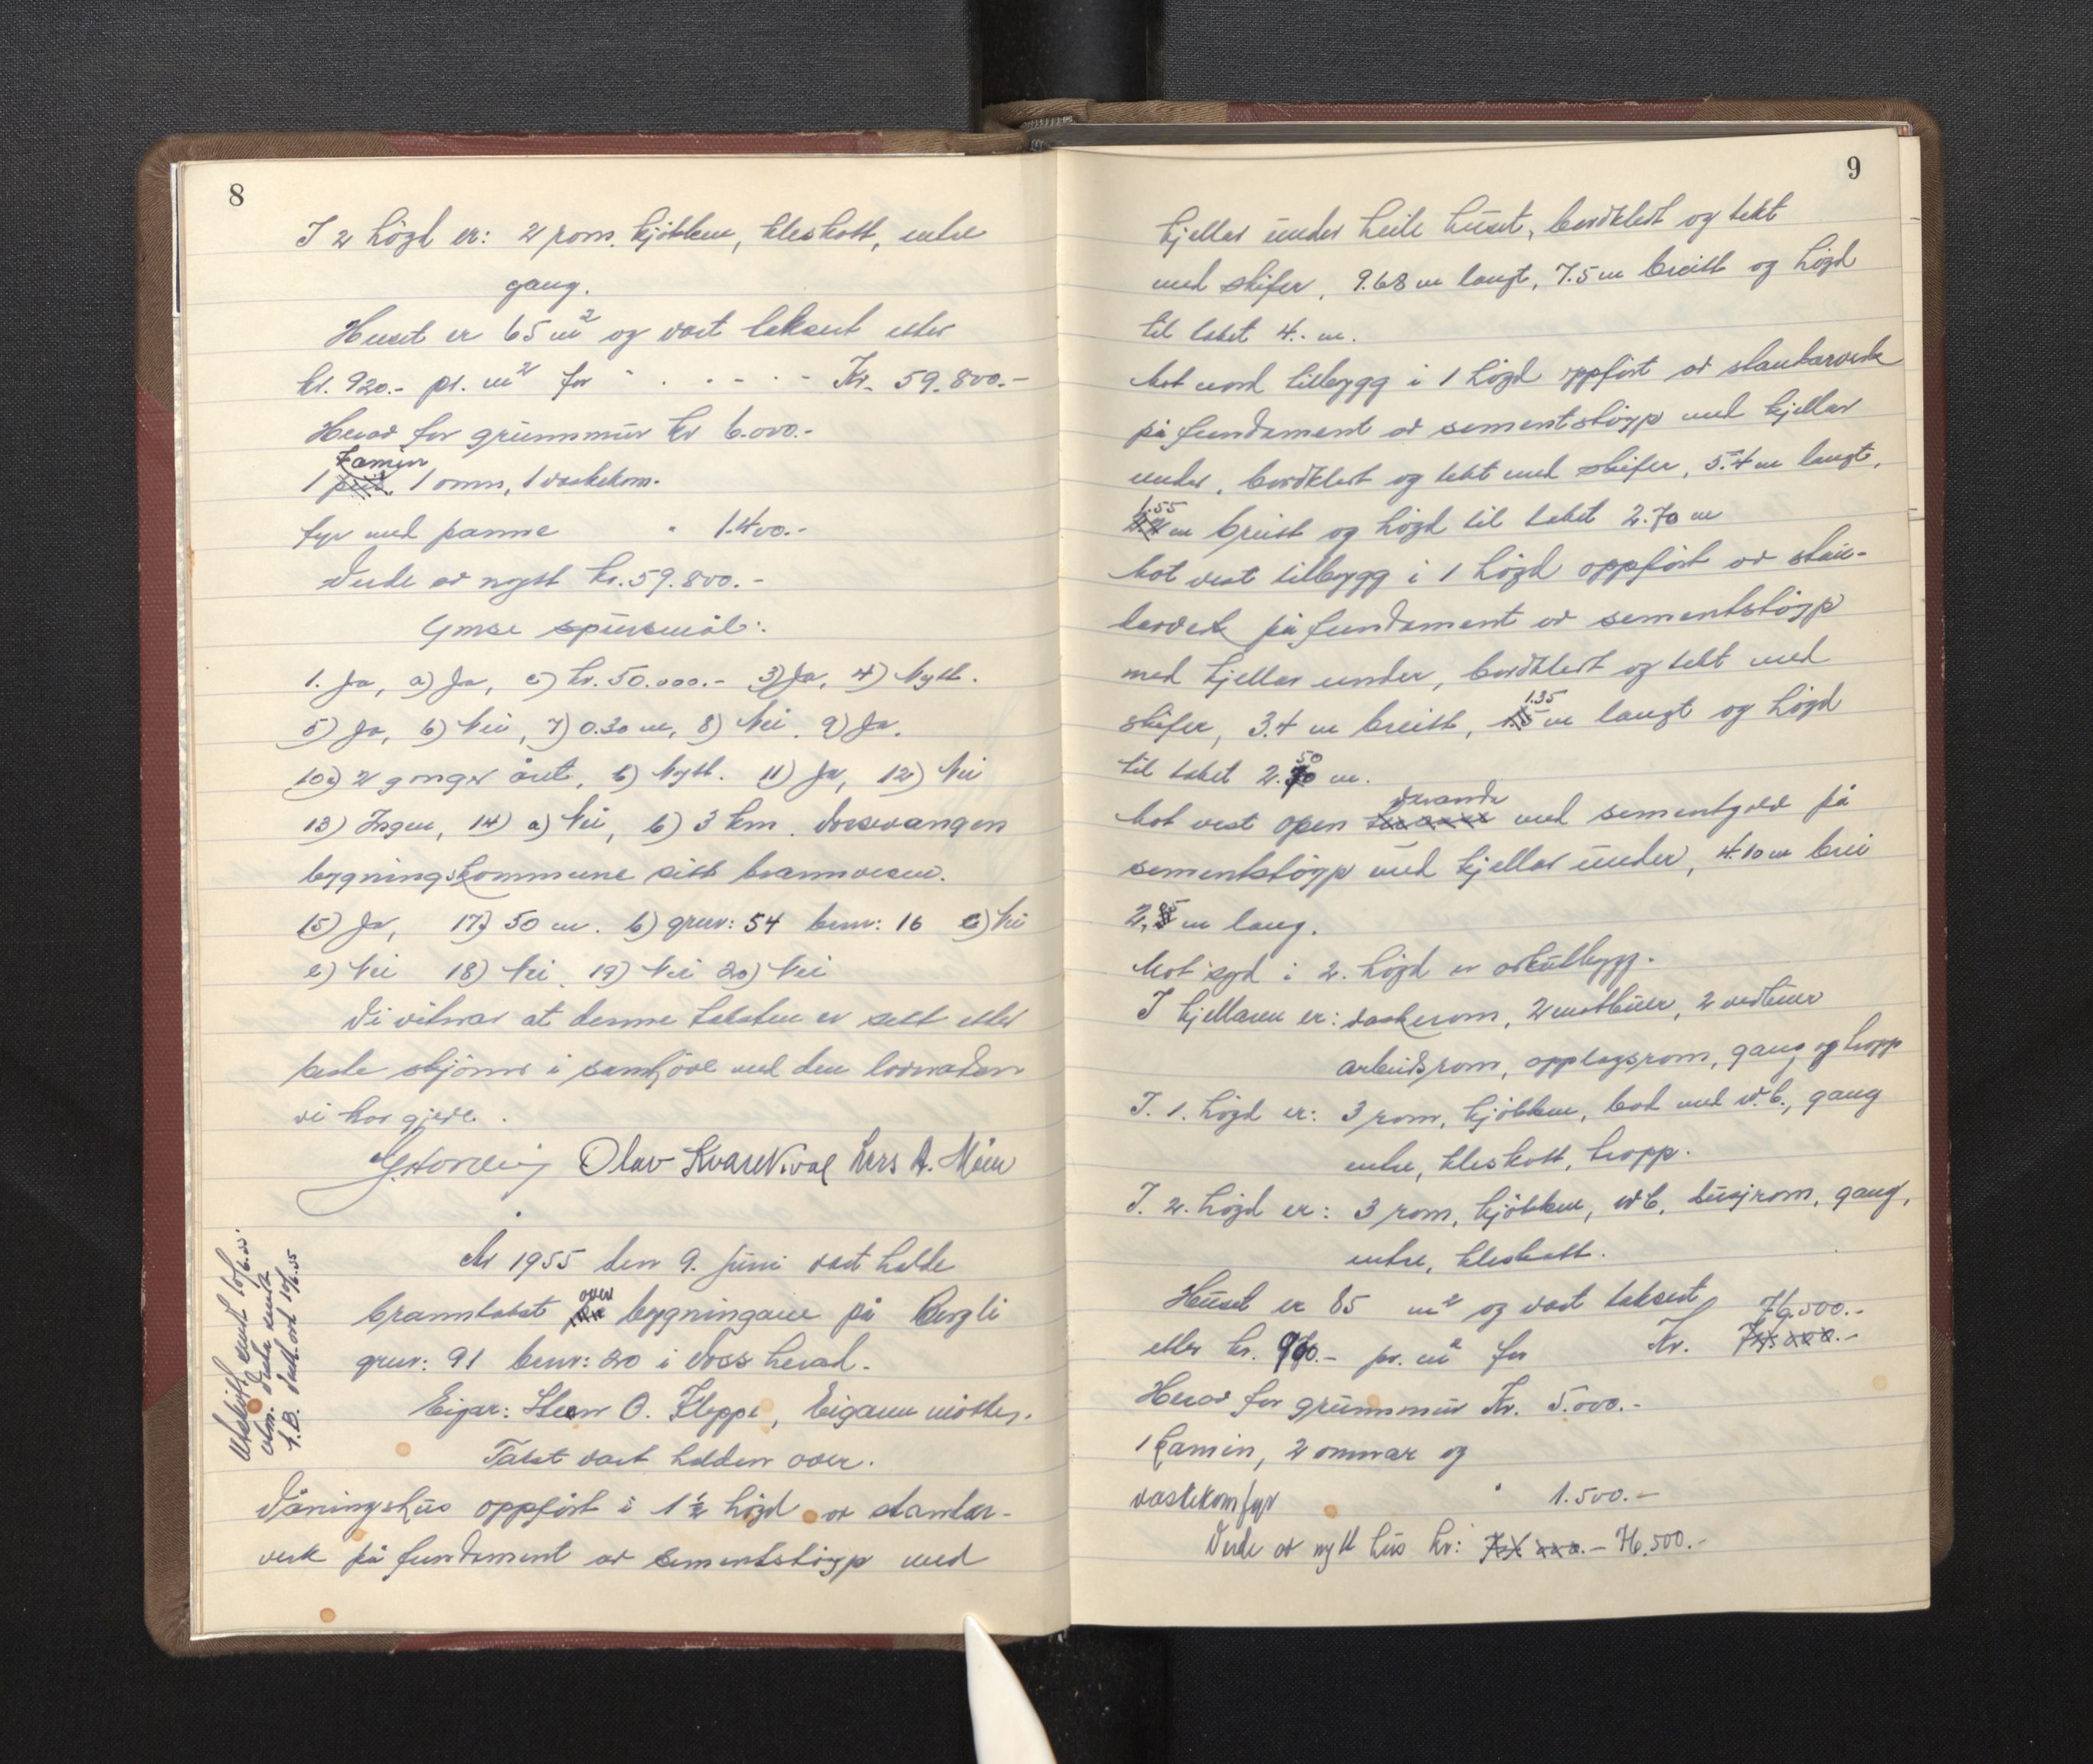 8
I 2 högd er: 2 rom, kjökken, kleskott, entre
gang.
Huset er 65 m² og vart taksert etter
kr. 920.- pr. m² for - . . - . - Kr. 59.800.-
Herav for grunnmur kr 6.000.-
kamin
1 1 omn, 1 vaskekom-
fyr med panne " 1.400.-
Verde av nytt kr. 59.800.-
Ymse spursmål:
1. Ja, a) Ja, c) kr. 50.000.- 3) Ja, 4) Nytt.
5) Ja, 6) Nei, 7) 0.30 m, 8) Nei. 9) Ja.
10a) 2 gonger året, b) Nytt. 11) Ja, 12) Nei
13) Ingen, 14) a) Nei, b) 3 km. Vossevangen
bygningskommune sitt brannvesen.
15) Ja, 17) 50 m. b) grnr: 54 bnr: 16 c) Nei
e) Nei 18) Nei, 19) Nei 20) Nei
Vi vitnar at denne taksten er sett etter
beste skjönn i samhöve med den lovnaden
vi har gjeve.
Olav Kvarekval Lars A. Möen
År 1955 den 9. juni vart halde
over
branntakst bygningane på Bergli
grnr: 91 bnr: 20 i Voss herad.
Eigar: Steen O. Kleppe, Eigaren mötte.
Takst vart halden over.
Våningshus oppfört i 1½ högd av standar-
verk på fundament av sementstöyp med
Utskrift sendt 10/6.55
9
kjellar under heile huset, bordkledt og tekt
med skifer, 9.68 m langt, 7.5 m breitt og högd
til taket 4.- m.
Mot nord tilbygg i 1 högd oppfört av standarverk
på fundament av sementstöyp med kjellar
under, bordkledt og tekt med skifer, 5.4 m langt,
1.55
m breitt og högd til taket 2.70 m
Mot vest tilbygg i 1 högd oppfört av stan-
darverk på fundament av sementstöyp
med kjellar under, bordkledt og tekt med
1.35
skifer, 3.4 m breitt, 1.5 m langt og högd
50
til taket 2.70 m.
veranda
Mot vest open med sementgolv på
sementstöyp med kjellar under, 4.10 m brei
2. m lang.
Mot syd i 2. högd er arkutbygg.
I kjellaren er: vaskerom, 2 matbuer, 2 vedbuer
arbeidsrom, opplagsrom, gang og tropp
I. 1. högd er: 3 rom, kjökken, bad med W.C., gang
entre, kleskott, tropp.
I. 2. högd er: 3 rom, kjökken, WC, dusjrom, gang,
entre, kleskott.
Huset er 85 m² og vart taksert 76.500.-
etter kr. 900.- pr. m² for Kr.
Herav for grunnmur Kr. 5.000.-
1 kamin, 2 omnar og
vaskekomfyr " 1.500.-
Verde av nytt hus kr: 76.500.-